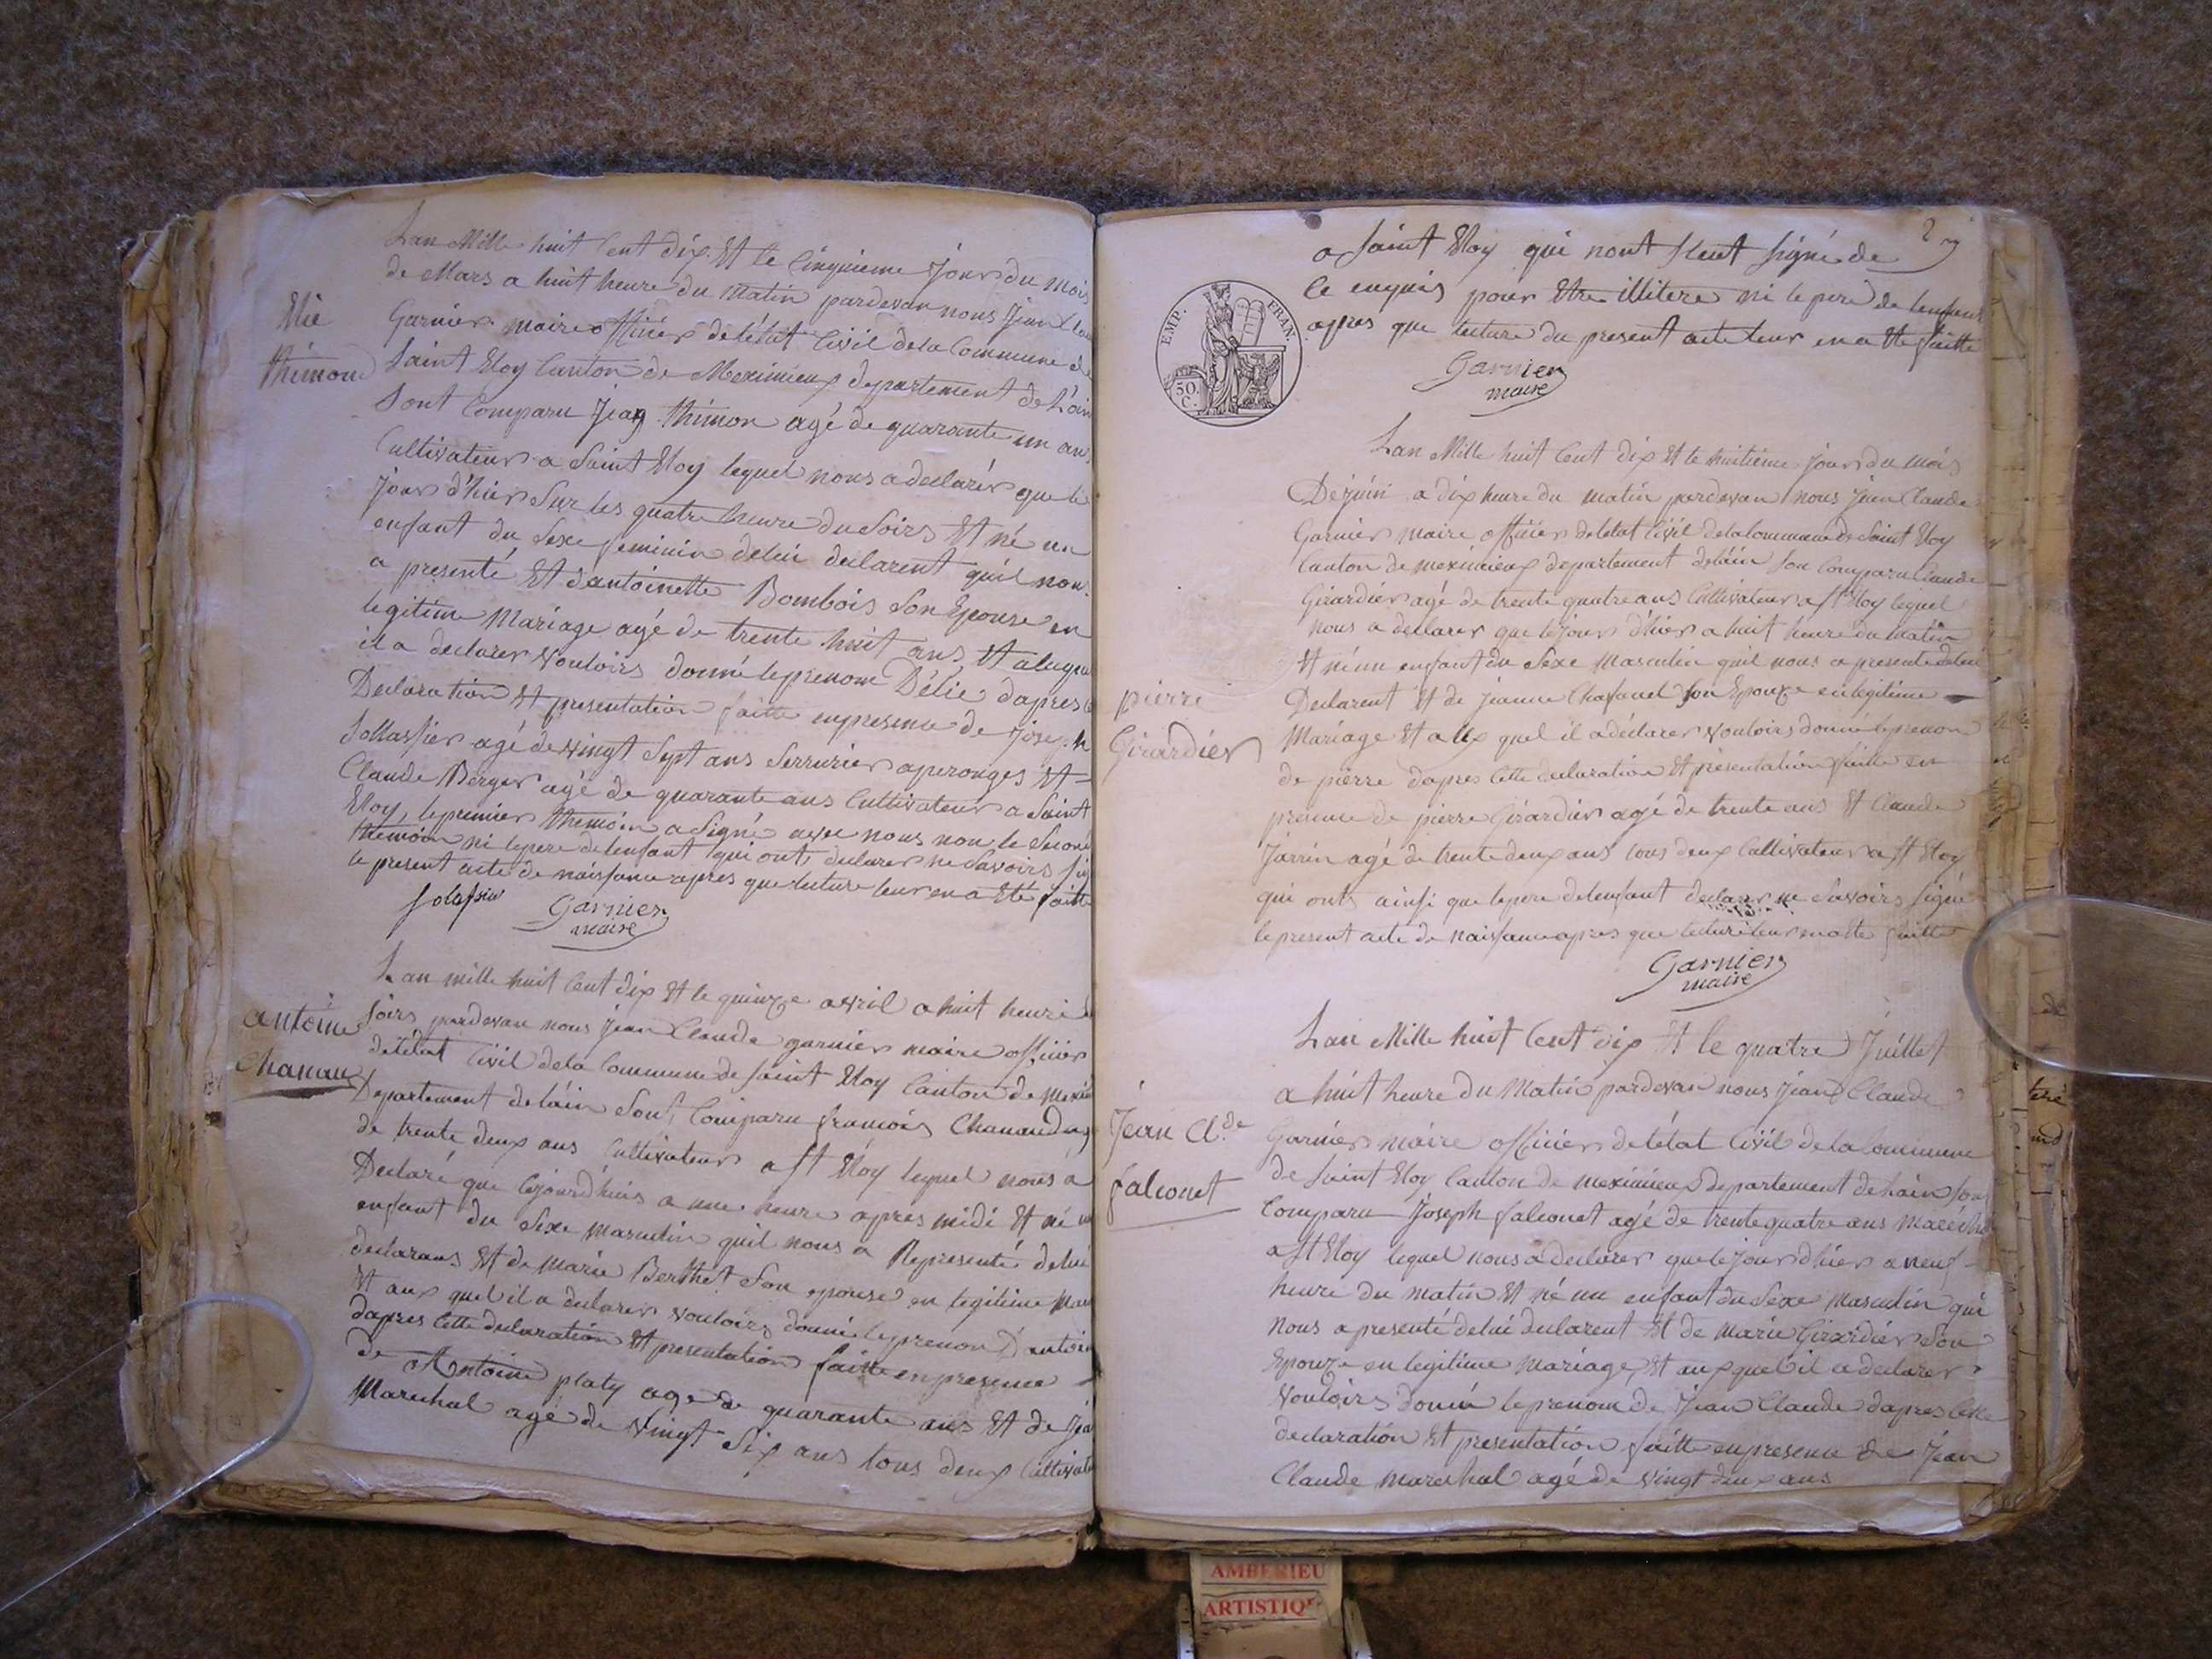 Lan Mille huit Cent dix Et le Cinquieme Jour du mois
de Mars a huit heure du Matin pardevan nous Jean
Elie
Garnier maire officier de létat Civil de la Commune de
thimon
Saint Eloy Canton de Meximieux departement de Lain
Sont Comparu Jean thimon agé de quarante un ans
Cultivateur a Saint Eloy lequel nous a declarér que le
Jour d'hier Sur les quatre heure du Soirs Et né un
enfant du Sexe feminin delui declarent quil nou
a presenté Et dantoinette Bombois Son Epouse en
legitime Mariage agé de trente huit ans Et
il a declarer Vouloirs donné le prenom Délie dapres
Declaration Et presentation faitte en presence de
Sollassier agé de Vingt Sept ans Serrurier a perouges Et
Claude Berger agé de quarante ans Cultivateur a Saint
Eloy, le premier themoin a Signé avec nous non le Second
themoin ni le pere de lenfant qui onts declarer ne Savoirs
le present acte de naissance apres que lecture leur en a Eté faitte
Solassier Garnier
maire
Lan mille huit Cent dix Et le quinze avril a huit heure
antoine
soirs pardevan nous Jean Claude garnier maire officier
Chanau
detétat Civil dela Commune de Saint Eloy Canton de
Departement de láin Sont Comparu francois
de trente deux ans Cultivateur a St Eloy lequel nous a
Declaré que Cejourdhuis a une heure apres midi Et né
enfant du Sexe masculin quil nous a Representé delui
declarans Et de Marie Berthet Son epouse en legitime
Et aux quel il a declarer Vouloirs donné le prenon
dapres Cette declaration Et presentation faitte en presence
de Antoine platy age de quarante ans Et de
Marechal agé de Vingt Six ans tous deux
a Saint Eloy qui nont signé de
Ce enquis pour Etre illitere ni le pere de lenfant
apres que lecture du present acte leur en a Eté faitte
EMP. FRAN.
50. C.
Garnier
maire
Lan Mille huit Cent dix Et le huitieme Jour du mois
De juin a dix heure du matin pardevan nous Jean Claude
Garnier maire officier de létat Civil dela Commune de Saint Eloy
Canton de meximieux departement deláin Son Comparu Claude
Girardier agé de trente quatre ans Cultivateur a St Eloy lequel
nous a declarer que le jour d'hier a huit heure du matin
Et né un enfant du Sexe Masculin quil nous a presenté delui
pierre
Declarent Et de Jeanne Son Epouze en legitime
Girardier
Mariage Et aux quel il a déclarer Vouloirs donné le prenom
de pierre dapres Cette declaration Et presentation faitte en
presence de pierre Girardier agé de trente ans Et Claude
Jarrin agé de trente deux ans tous deux Cultivateur a St Eloy
qui onts ainsi que le pere de lenfant declarer ne Savoirs Signé
le present acte de naissance apres que lecture leur en a Eté faitte
Garnier
maire
Lan Mille huit Cent dix Et le quatre Juillet
a huit heure du Matin pardevan nous Jean Claude
Jean Cl.de
Garnier maire officier de létat Civil de la Commune
falconet
de Saint Eloy Canton de meximieux departement de Lain Son
Comparu Joseph falconet agé de trente quatre ans
a St Eloy lequel nous a declarer que le jour dhier a neuf
heure du matin Et né un enfant du Sexe Masculin qui
nous a presenté delui declarent Et de Marie Girardier Son
Epouze en legitime Mariage Et aux quel il a declarer
Vouloirs donné le prenom de Jean Claude dapres Cette
declaration Et presentation faitte en presence de Jean
Claude Marechal agé de Vingt deux ans
AMBERIEU
ARTISTIQ